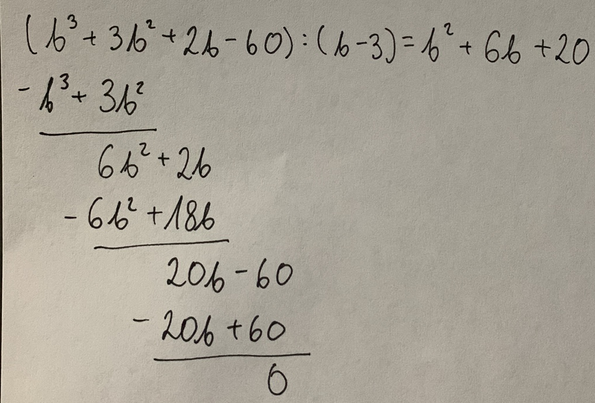 (b³ + 3b² + 2b - 60) : (b - 3) = b² + 6b + 20
- b³ + 3b²
6b² + 2b
- 6b² + 18b
20b - 60
- 20b + 60
0